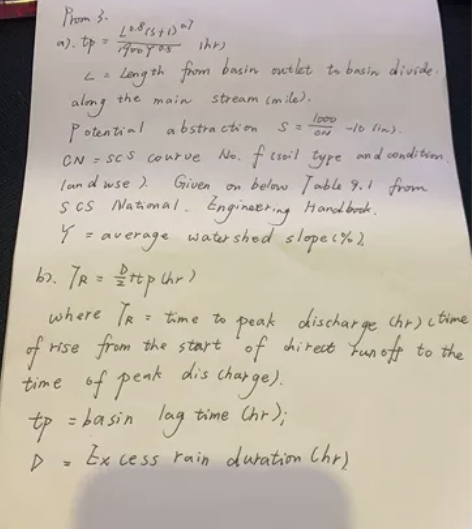 Prom 3.
a). tp = L^0.8 (S+1)^0.7 / 1900 Y^0.5 (hr)
L = Length from basin outlet to basin divide.
along the main stream (mile).
Potential abstraction S = 1000/CN -10 (in).
CN = SCS courve No. f (soil type and condition.
land wse). Given on below Table 9.1 from
SCS National. Engineering Handbook.
Y = average watershed slope (%)
b). TR = D/2 + tp (hr)
where TR = time to peak discharge (hr) (time
of rise from the start of direct runoff to the
time of peak discharge).
tp = basin lag time (hr);
D = Excess rain duration (hr)